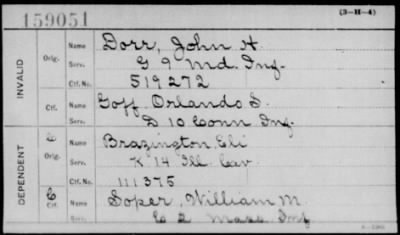 159051
(3-H-4)
INVALID
Orig.
Name Dorr, John H.
Serv. G 9 Md. Inf.
Ctf. No. 519272
Ctf. Name Goff, Orlando S.
Serv. D 10 Conn Inf.
DEPENDENT
C
Orig.
Name Brazington, Eli
Serv. K 14 Ill Cav.
Ctf. No. 111375
C
Ctf. Name Soper, William M.
Serv. C 2 Mass Inf